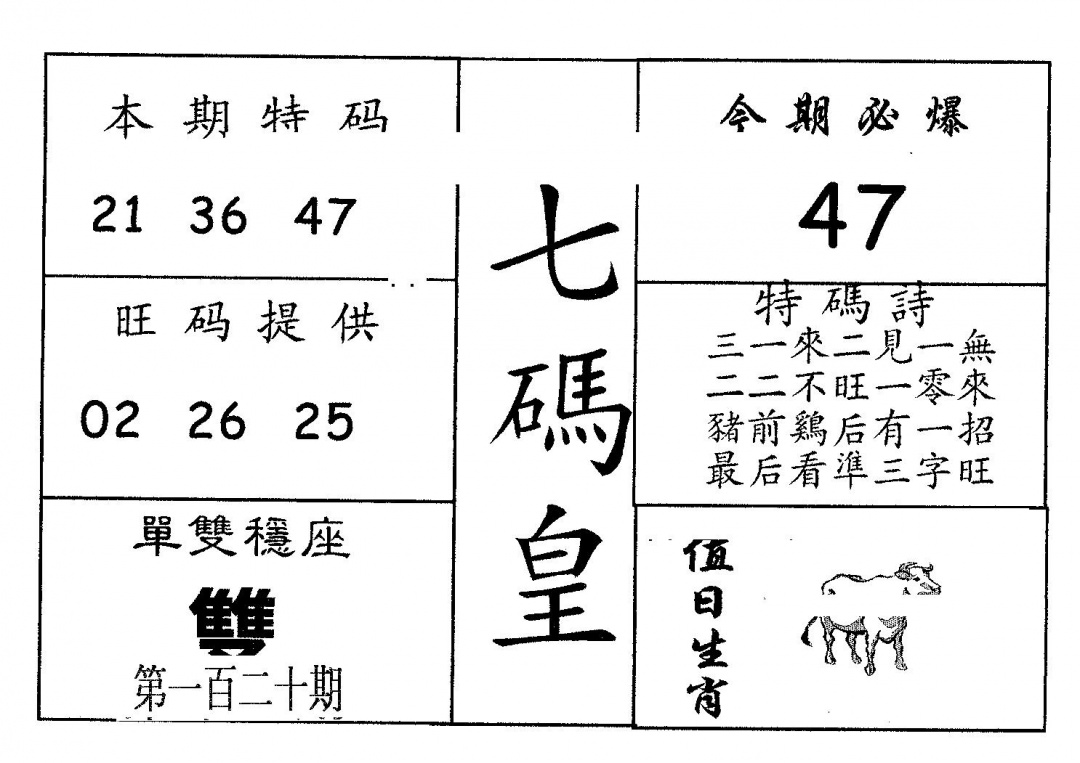 本期特码
21 36 47
旺码提供
02 26 25
單雙穩座
雙
第一百二十期
七碼皇
今期必爆
47
特碼詩
三一來二見一無
二二不旺一零來
豬前鷄后有一招
最后看準三字旺
值日生肖